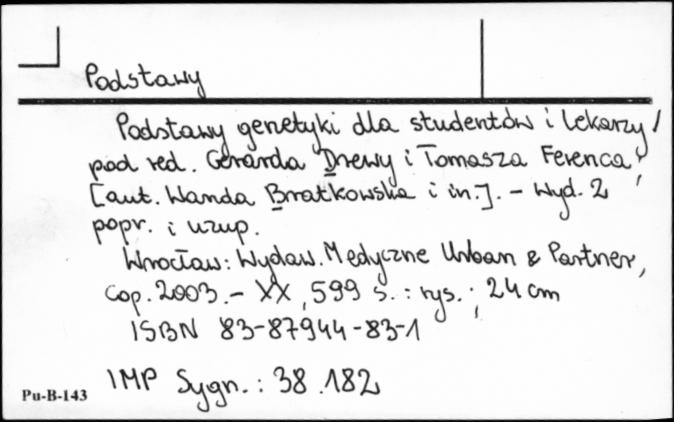 Podstawy
Podstawy genetyki dla studentów i lekarzy /
pod red. Gerarda Drewy i Tomasza Ferenca ;
[aut. Wanda Bratkowska i in.]. - Wyd. 2
popr. i uzup.
Wrocław : Wydaw. Medyczne Urban & Partner,
cop. 2003. - XX, 599 s. : rys. ; 24 cm
ISBN 83-87944-83-1
IMP Sygn. : 38.182
Pu-B-143